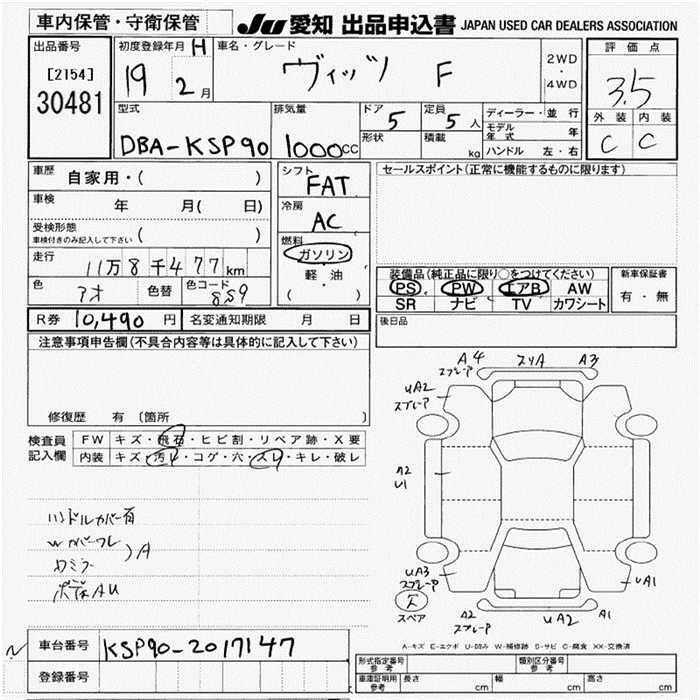 車内保管・守衛保管
JU 愛知 出品申込書 JAPAN USED CAR DEALERS ASSOCIATION
出品番号
[2154]
30481
初度登録年月 H
19 2月
車名・グレード
ヴィッツ F
2WD
・
4WD
評価点
3.5
外装 内装
C C
型式
DBA-KSP90
排気量
1000cc
ドア 5
形状
定員 5人
積載 kg
ディーラー・並行
モデル年式 年
ハンドル 左・右
車歴 自家用・( )
車検 年 月( 日)
受検形態
車検付きのみ記入して下さい ( )
走行 11万8千477km
色 アオ 色替 色コード 8S9
シフト FAT
冷房 AC
燃料
ガソリン
軽・油
( )
セールスポイント(正常に機能するものに限ります)
装備品(純正品に限り○をつけてください)
PS PW エアB AW
SR ナビ TV カワシート
新車保証書
有・無
R券 10,490円 名変通知期限 月 日
後日品
注意事項申告欄(不具合内容等は具体的に記入して下さい)
修復歴 有 〔箇所 〕
検査員記入欄
FW キズ・飛石・ヒビ割・リペア跡・X要
内装 キズ・汚レ・コゲ・穴・スレ・キレ・破レ
ハンドルカバー有
Wカバーワレ
A
A4 スリA A3
スプレーP
UA2
スプレーP
A2
U1
UA3
スプレーP
UA1
スペア
A2
スプレーP
UA2 A1
A-キズ E-エクボ U-凹み W-補修跡 S-サビ C-腐食 XX-交換済
車台番号 KSP90-2017147
登録番号
形式指定番号
参考
類別区分番号
参考
車庫証明用
参考
長さ cm 幅 cm 高さ cm